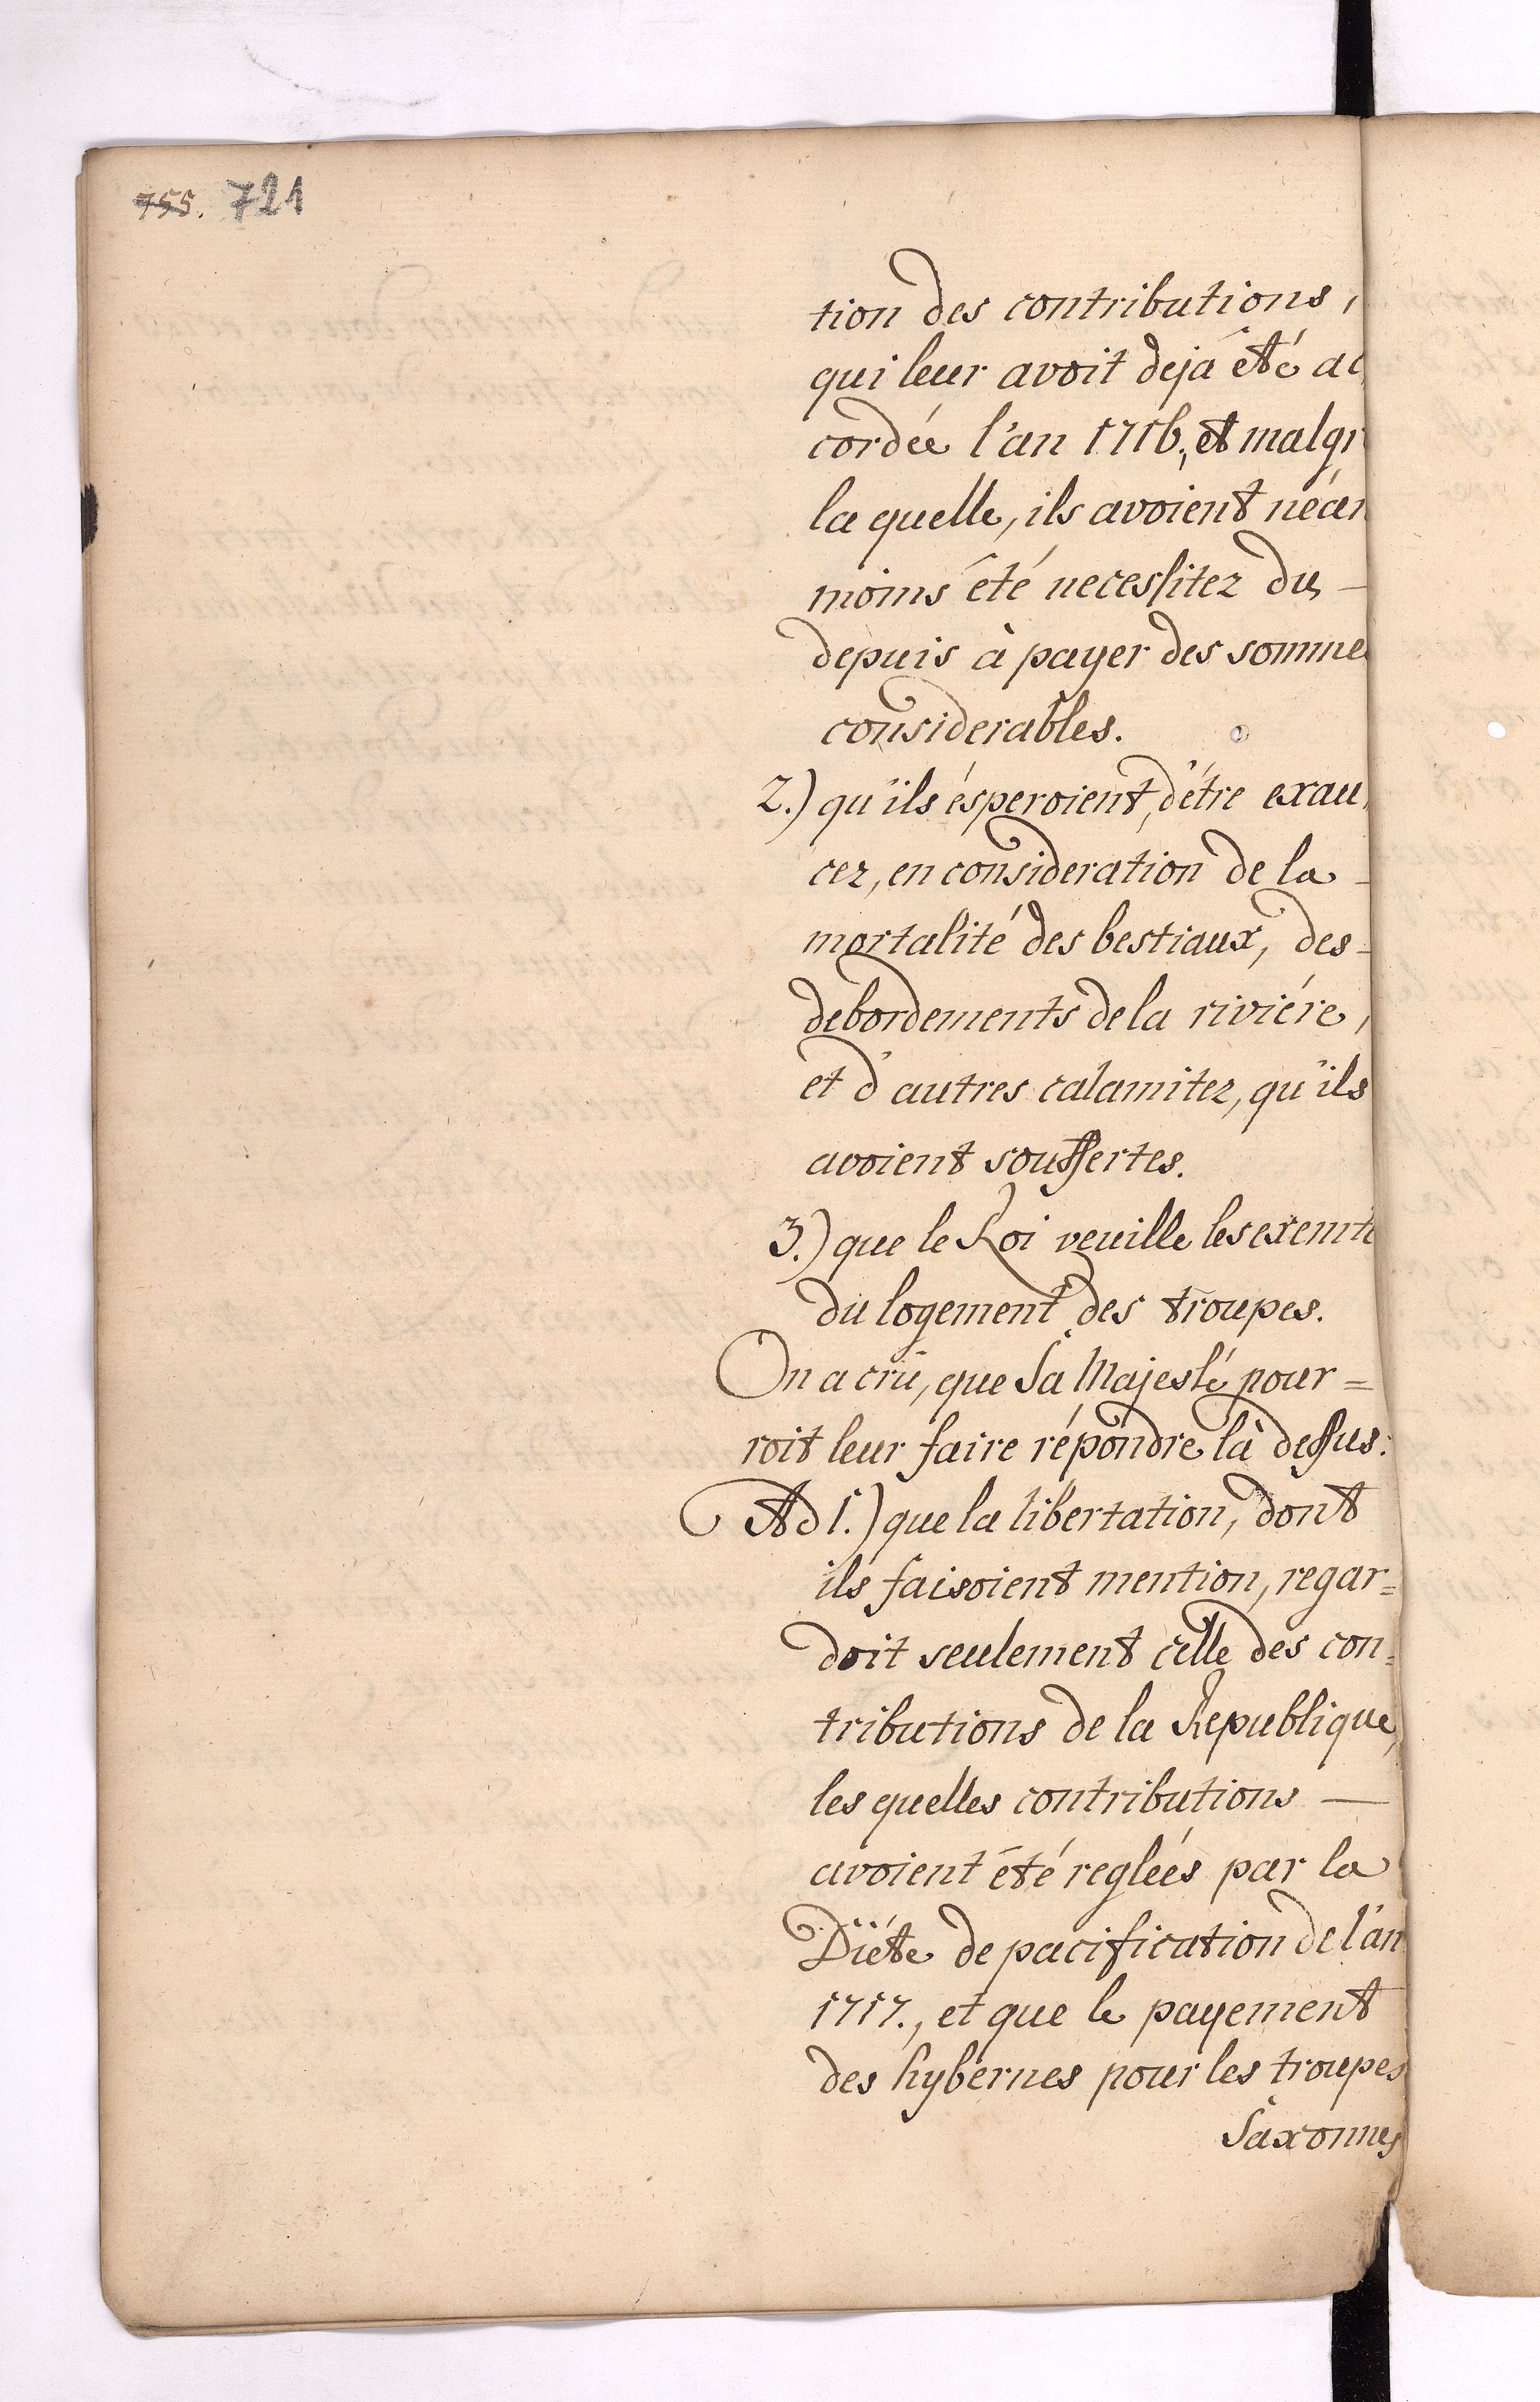 755. 721
tion des contributions,
qui leur avoit dejá été ac
cordée l'an 1716., et malgr
la quelle, ils avoient néan
moins été necessitez du
depuis à payer des somme
considerables.
2.) qu'ils ésperoient, d'étre exau
cez, en consideration de la
mortalité des bestiaux, des
debordements de la riviére,
et d'autres calamitez, qu'ils
avoient souffertes.
3.) que le Roi veuille les exemte
du logement des troupes.
On a crû, que Sa Majesté pour=
roit leur faire répondre là dessus:
Ad 1.) que la libertation, dont
ils faisoient mention, regar=
doit seulement celle des con=
tributions de la Republique,
les quelles contributions —
avoient été reglées par la
Diéte de pacification de l'an
1717., et que le payement
des hybernes pour les troupes
Saxonnes